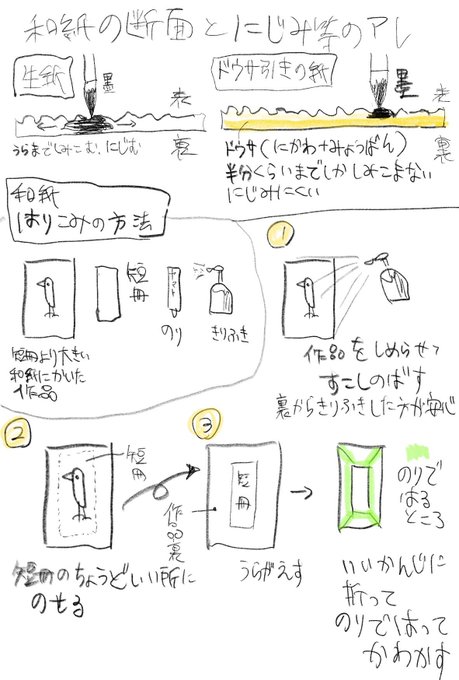 和紙の断面とにじみ等のアレ
生紙
墨
表
裏
うらまでしみこむ、にじむ
ドウサ引きの紙
墨
表
裏
ドウサ(にかわ+みょうばん)
半分くらいまでしかしみこまない
にじみにくい
和紙
はりこみの方法
短冊
ヤマト
のり
きりふき
短冊より大きい
和紙にかいた
作品
1
作品をしめらせて
すこしのばす
裏からきりふきした方が安心
2
短冊
短冊のちょうどいい所に
のせる
3
短冊
作品裏
うらがえす
のりで
はる
ところ
いいかんじに
折って
のりではって
かわかす